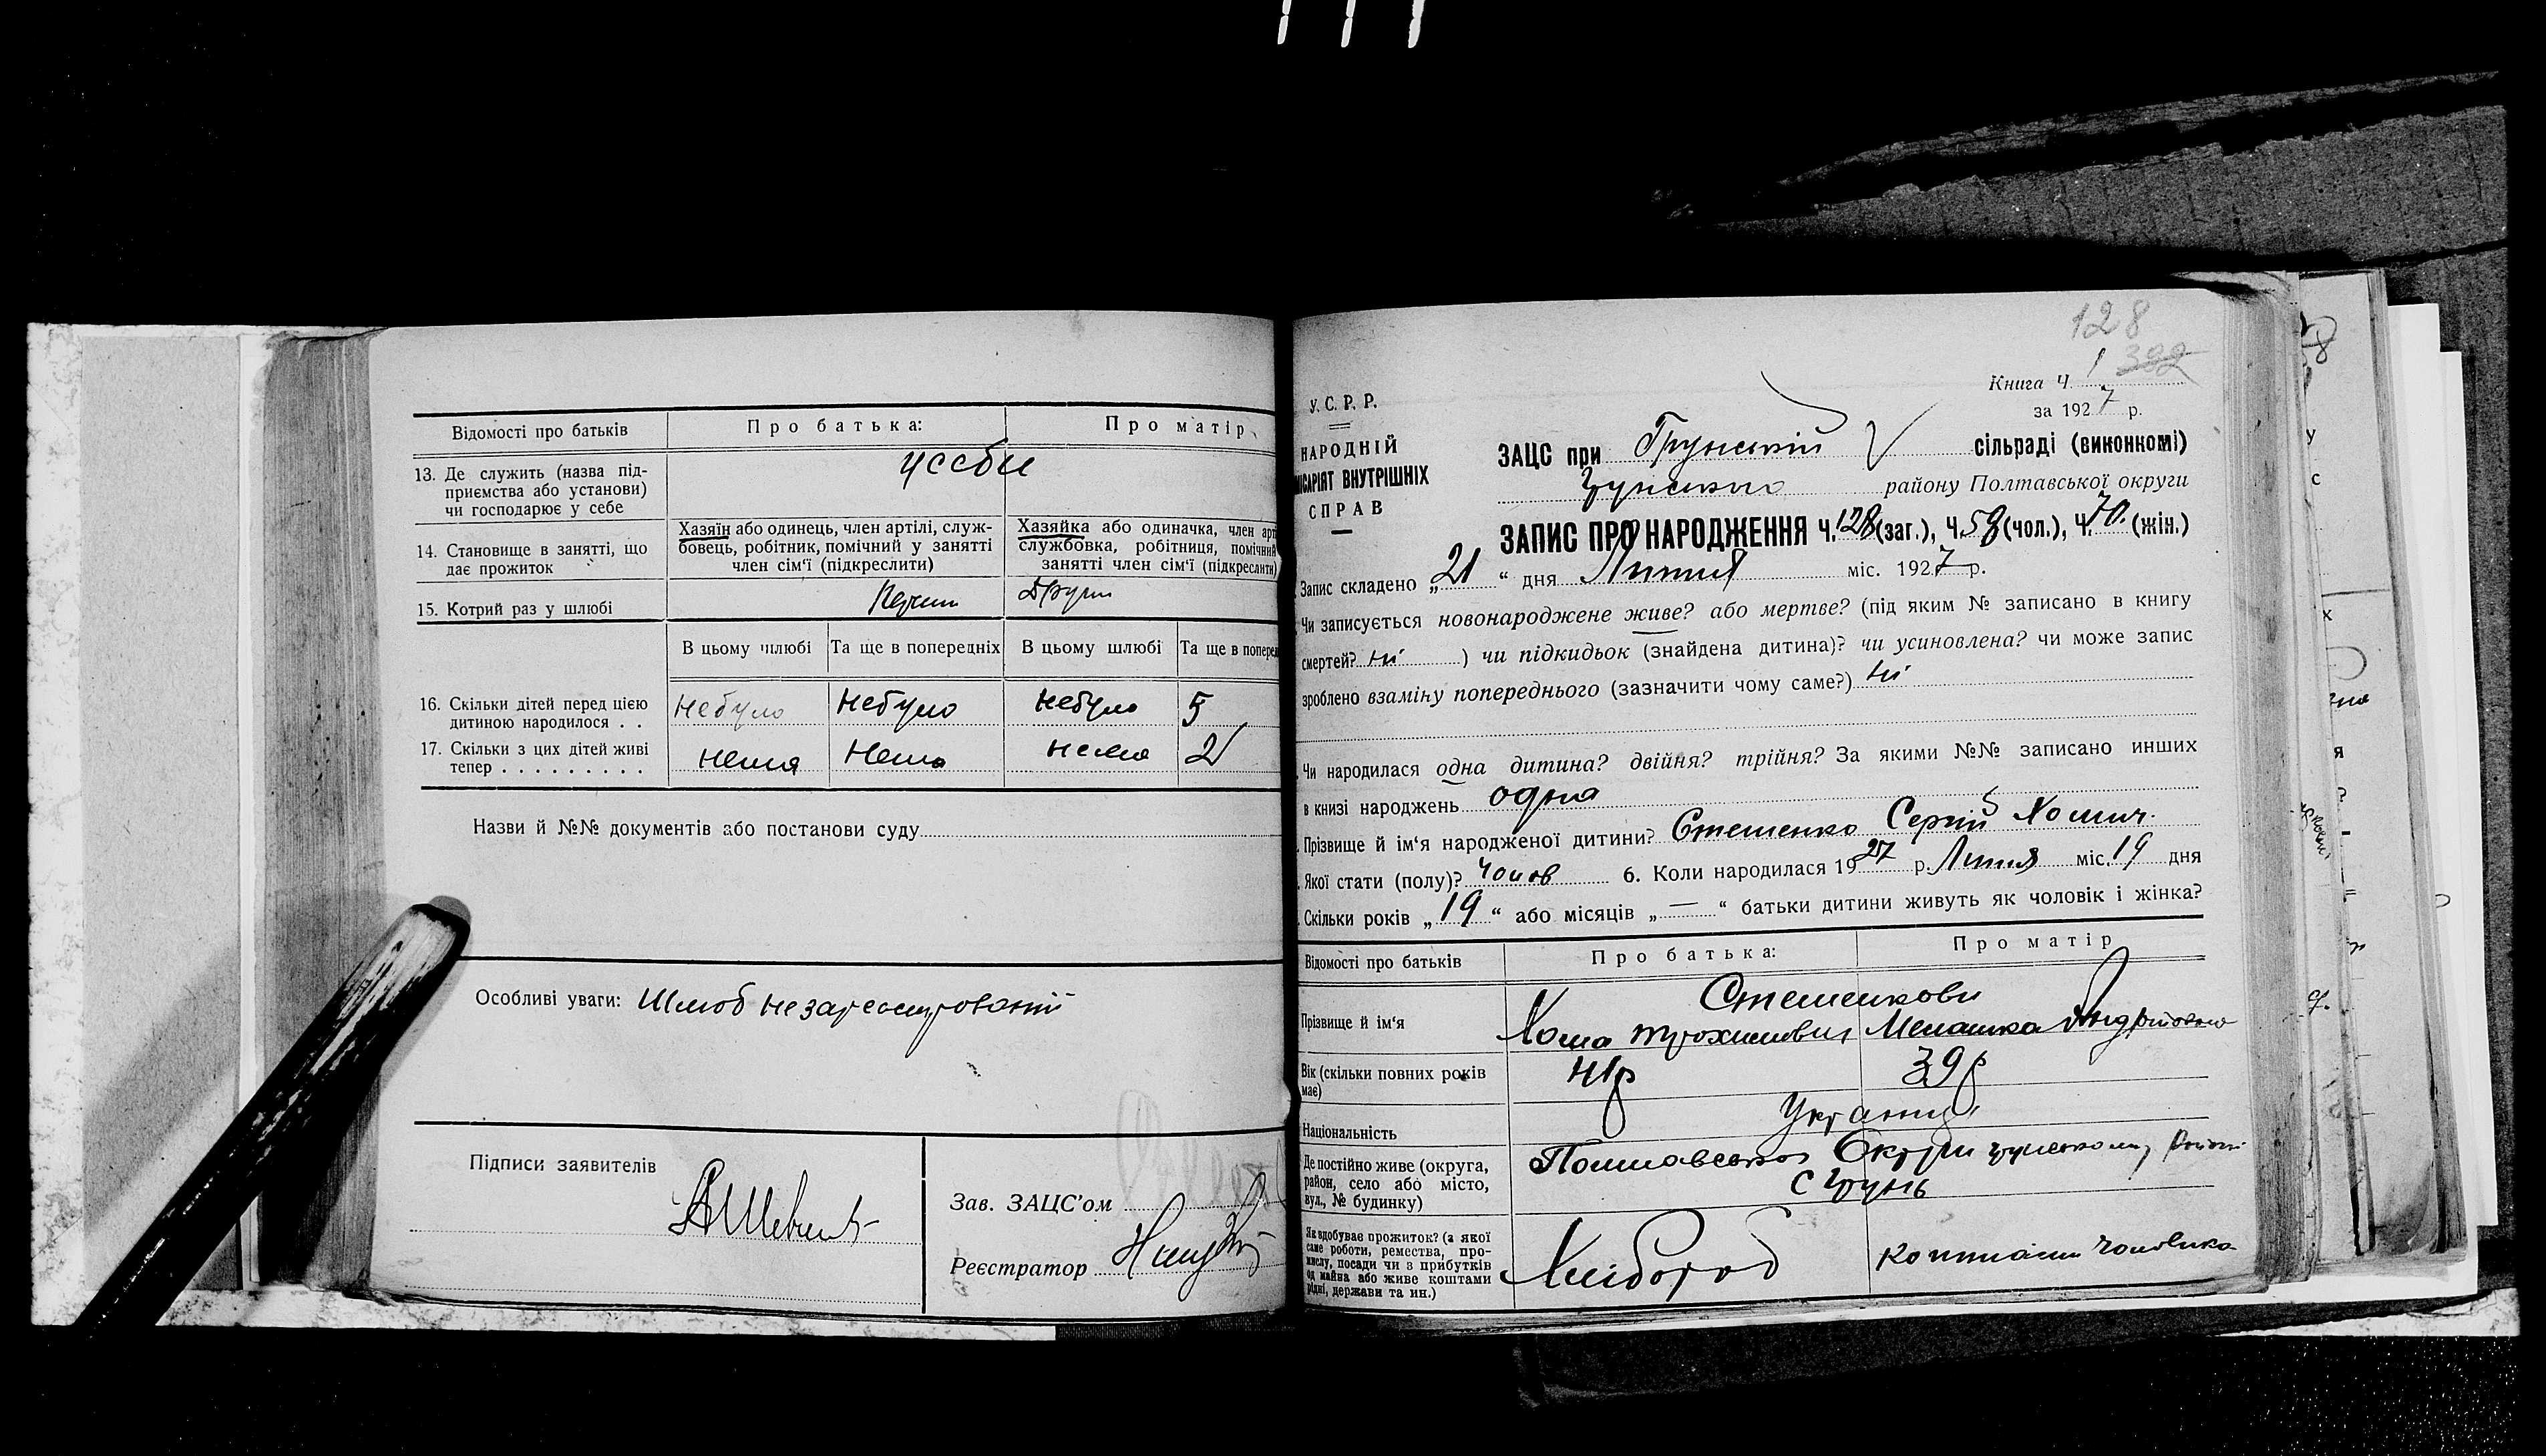 Відомості про батьків
Про батька:
Про матір
13. Де служить (назва під-
приємства або установи)
чи господарює у себе
усебе
14. Становище в занятті, що
дає прожиток
Хазяїн або одинець, член артілі, служ-
бовець, робітник, помічний у занятті
член сім'ї (підкреслити)
Хазяйка або одиначка, член арті
службовка, робітниця, помічний
занятті член сім'ї (підкреслити)
15. Котрий раз у шлюбі
В цьому шлюбі
Та ще в попередніх
В цьому шлюбі
Та ще в поперед
16. Скільки дітей перед цією
дитиною народилося . .
небуло
небуло
небуло
5
17. Скільки з цих дітей живі
тепер . . . . . . . . .
нема
нема
нема
2
Назви й №№ документів або постанови суду
Особливі уваги: Шлюб незареєстрований
Підписи заявителів
Зав. ЗАЦС'ом
Реєстратор
128
1 392
Книга Ч
за 1927 р.
У. С. Р. Р.
НАРОДНІЙ
МІСАРІЯТ ВНУТРІШНІХ
СПРАВ
ЗАЦС при Грунській сільраді (виконкомі)
Грунського району Полтавської округи
ЗАПИС ПРО НАРОДЖЕННЯ Ч. 128 (заг.), Ч. 58 (чол.), Ч. 70. (жін.)
Запис складено „21“ дня Липня міс. 1927 р.
Чи записується новонароджене живе? або мертве? (під яким № записано в книгу
смертей? ні) чи підкидьок (знайдена дитина)? чи усиновлена? чи може запис
зроблено взаміну попереднього (зазначити чому саме?) ні
Чи народилася одна дитина? двійня? трійня? За якими №№ записано инших
в книзі народжень одна
Прізвище й ім'я народженої дитини? Стешенко Сергій Хомич.
Якої стати (полу)? Чолов 6. Коли народилася 1927 р. Липня міс. 19 дня
Скільки років „19“ або місяців „—“ батьки дитини живуть як чоловік і жінка?
Відомості про батьків
Про батька:
Про матір
Прізвище й ім'я
Стешенкови
Хома Трохимович
Мелашка Андріївна
Вік (скільки повних років
має)
41р
39р
Національність
Українці
Де постійно живе (округа,
район, село або місто,
вул., № будинку)
Полтавської Округи Грунському районі
с Грунь
Як здобуває прожиток? (з якої
саме роботи, ремества, про-
мислу, посади чи з прибутків
од майна або живе коштами
рідні, держави та ин.)
Хлібороб
коштами чоловіка